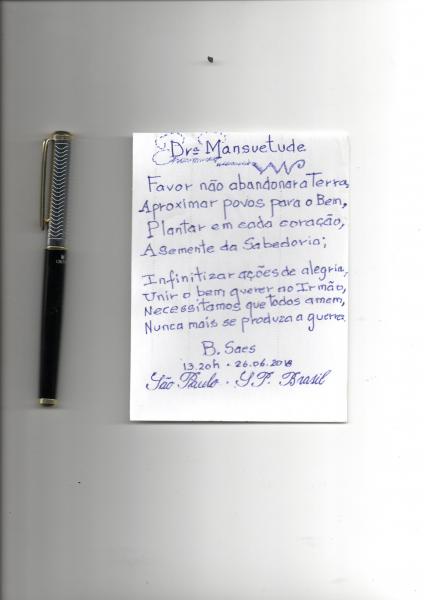 Drª Mansuetude
Favor não abandonar a Terra,
Aproximar povos para o Bem,
Plantar em cada coração,
A semente da Sabedoria;
Infinitizar ações de alegria,
Unir o bem querer ao Irmão,
Necessitamos que todos amem,
Nunca mais se produza a guerra.
B. Saes
13.20h - 26.06.2018
São Paulo - S.P. Brasil